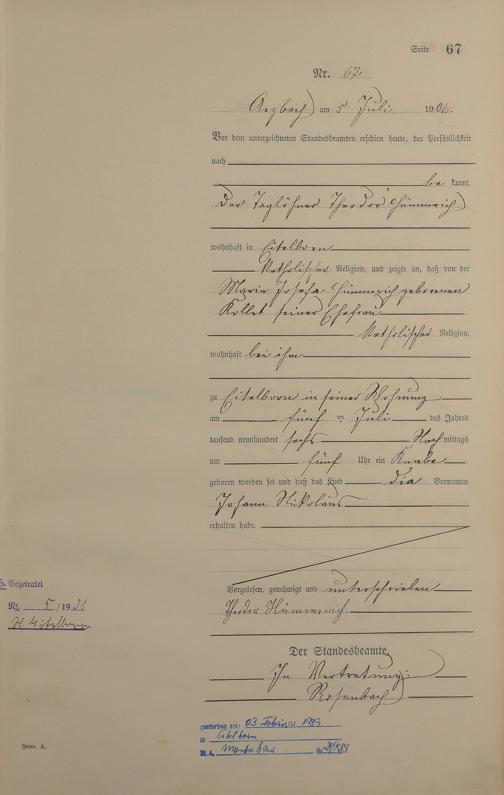 Seite 67
Nr. 67
Arzbach am 5 Juli 1906.
Vor dem unterzeichneten Standesbeamten erschien heute, der Persönlichkeit
nach
be kannt,
der Taglöhner Theodor Hümmerich
wohnhaft in Eitelborn
katholischer Religion, und zeigte an, daß von der
Maria Josefa Hümmerich geborenen
Kollet seiner Ehefrau
katholischer Religion,
wohnhaft bei ihm
zu Eitelborn in seiner Wohnung
am fünf ten Juli des Jahres
tausend neunhundert sechs Nach mittags
um fünf Uhr ein Knabe
geboren worden sei und daß das Kind die Vornamen
Johann Nikolaus
erhalten habe.
Vorgelesen, genehmigt und unterschrieben
Theodor Hümmerich.
Geheiratet
Nr. 5 / 19
St. Eitelborn
Der Standesbeamte.
In Vertretung:
Rosenbach
gestorben am: 03. Februar 1989
in Eitelborn
St.A. Montabaur Nr.
Form. A.